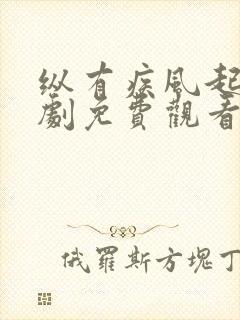 纵有疾风起
劇免費觀看
俄羅斯方塊丁